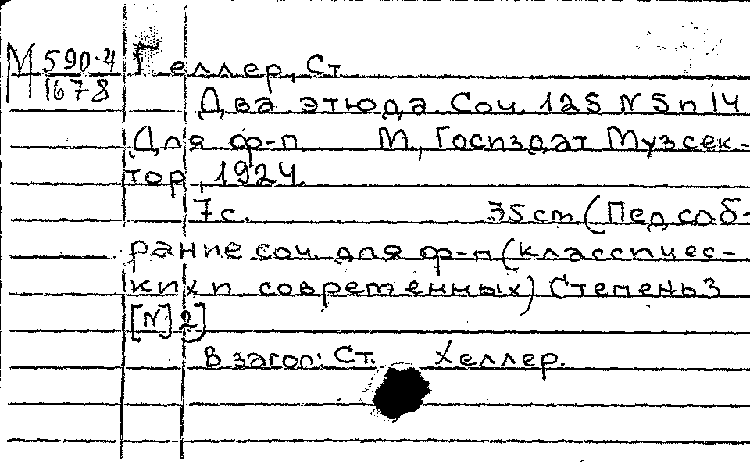 М 590-4
1678
Геллер, Ст.
Два этюда. Соч. 125 N 5 и 14
Для ф-п. М., Госиздат Музсек-
тор, 1924.
7 с. 35 cm (Пед собрание
рание соч. для ф-п (классичес-
ких и современных) Степень 3
[N] 2]
В загол: Ст. Хеллер.